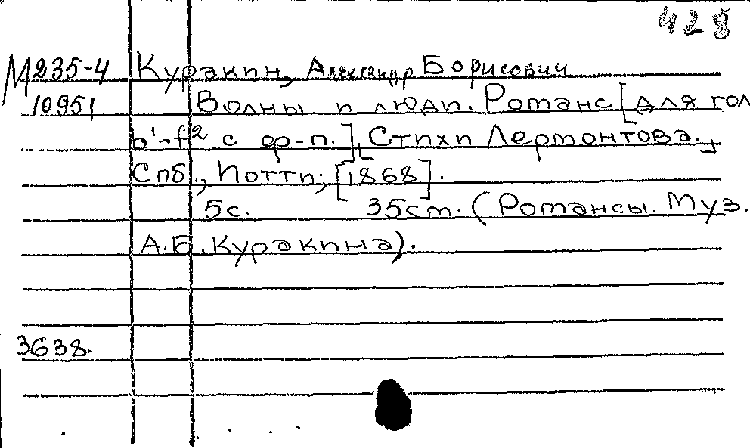 428
М235-4 Куракин, Александр Борисович
10951 Волны и люди. Романс [для гол.
b¹-f² с ф-п.], [Стихи Лермонтова.]
Спб., Иотти, [1868].
5с. 35cm. (Романсы. Муз.
А.Б. Куракина).
3638.